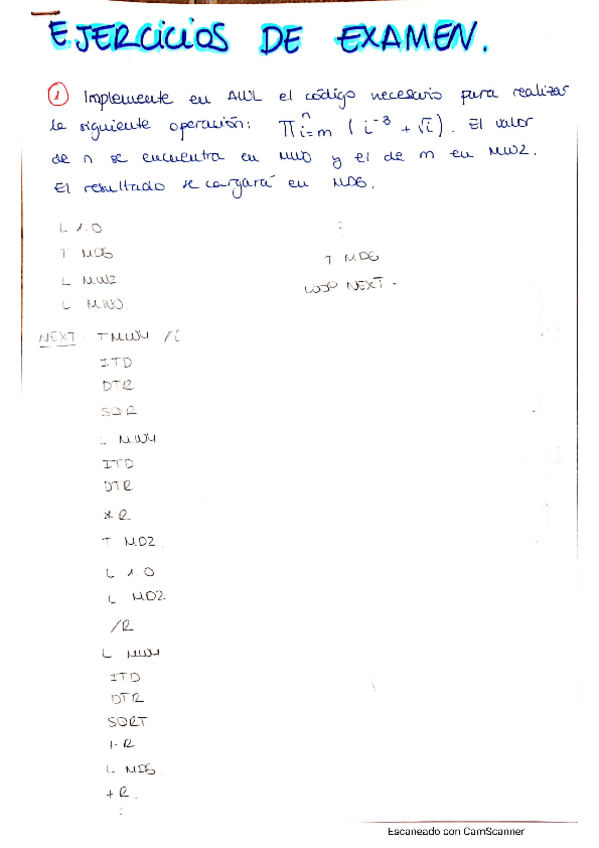 EJERCICIOS DE EXAMEN.
① Implemente en AWL el código necesario para realizar
la siguiente operación: ∏ⁿi=m (i⁻³ + √i). El valor
de n se encuentra en MW0 y el de m en MW2.
El resultado se cargará en MD6.
L 1.0
T MD6
L MW2
L MW0
NEXT TMW4 /i
ITD
DTR
SQR
L MW4
ITD
DTR
*R
T MD2.
L 1.0
L MD2
/R
L MW4
ITD
DTR
SQRT
+R
L MD6
+R.
:
:
T MD6
LOOP NEXT.
Escaneado con CamScanner